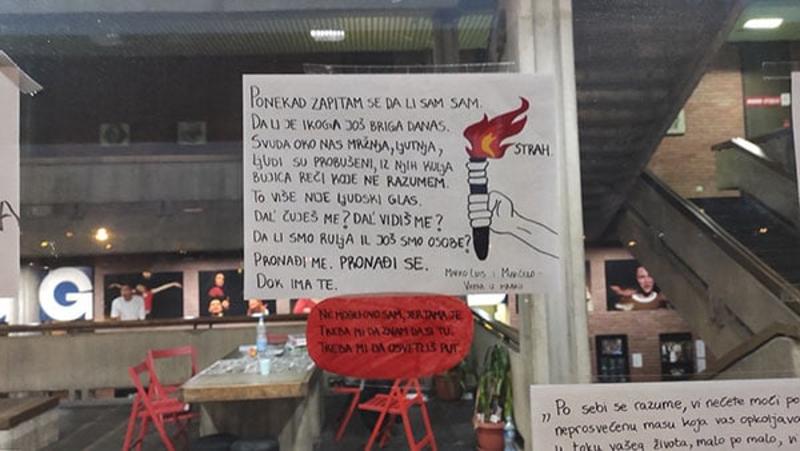 PONEKAD ZAPITAM SE DA LI SAM SAM.
DA LI JE IKOGA JOŠ BRIGA DANAS.
SVUDA OKO NAS MRŽNJA, LJUTNJA,
LJUDI SU PROBUŠENI, IZ NJIH KULJA
BUJICA REČI KOJE NE RAZUMEM.
TO VIŠE NIJE LJUDSKI GLAS.
DAL' ČUJEŠ ME? DAL' VIDIŠ ME?
DA LI SMO RULJA IL JOŠ SMO OSOBE?
PRONAĐI ME. PRONAĐI SE.
DOK IMA TE.
STRAH.
MARKO LUIS I MARČELO -
VATRA U MRAKU
NE MOGU OVO SAM, JER TAMA JE.
TREBA MI DA ZNAM DA SI TU.
TREBA MI DA OSVETLIŠ PUT.
„Po sebi se razume, vi nećete moći po
neprosvećenu masu koja vas opkoljava
u toku vašeg života, malo po malo, vi
A
G